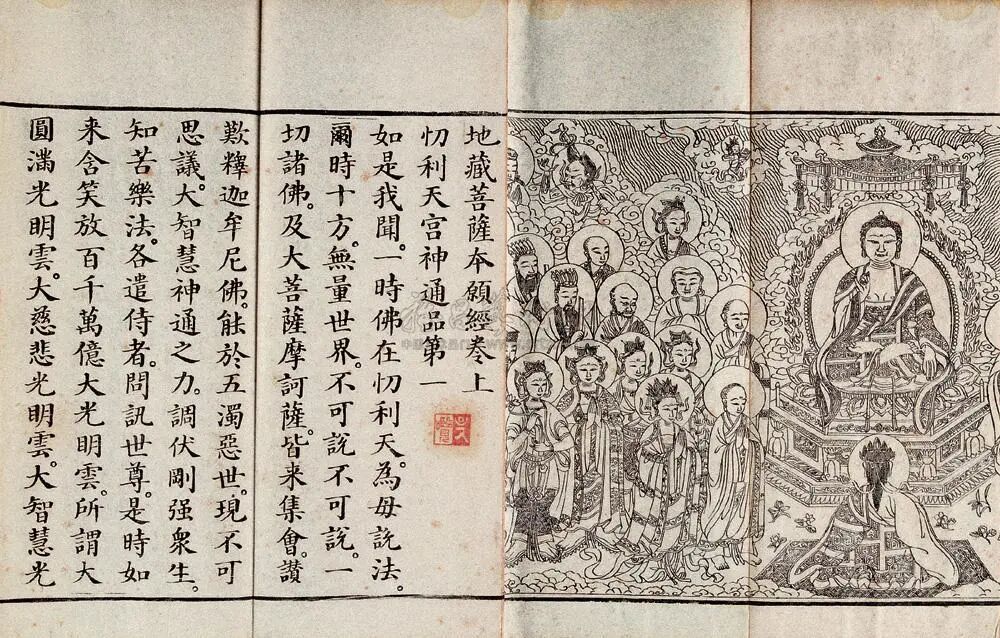 地藏菩薩本願經卷上
忉利天宮神通品第一
如是我聞。一時佛在忉利天。為母說法。
爾時十方。無量世界。不可說不可說。一
切諸佛。及大菩薩摩訶薩。皆来集會。讚
歎釋迦牟尼佛。能於五濁惡世。現不可
思議。大智慧神通之力。調伏剛强衆生。
知苦樂法。各遣侍者。問訊世尊。是時如
来含笑放百千萬億大光明雲。所謂大
圓滿光明雲。大慈悲光明雲。大智慧光